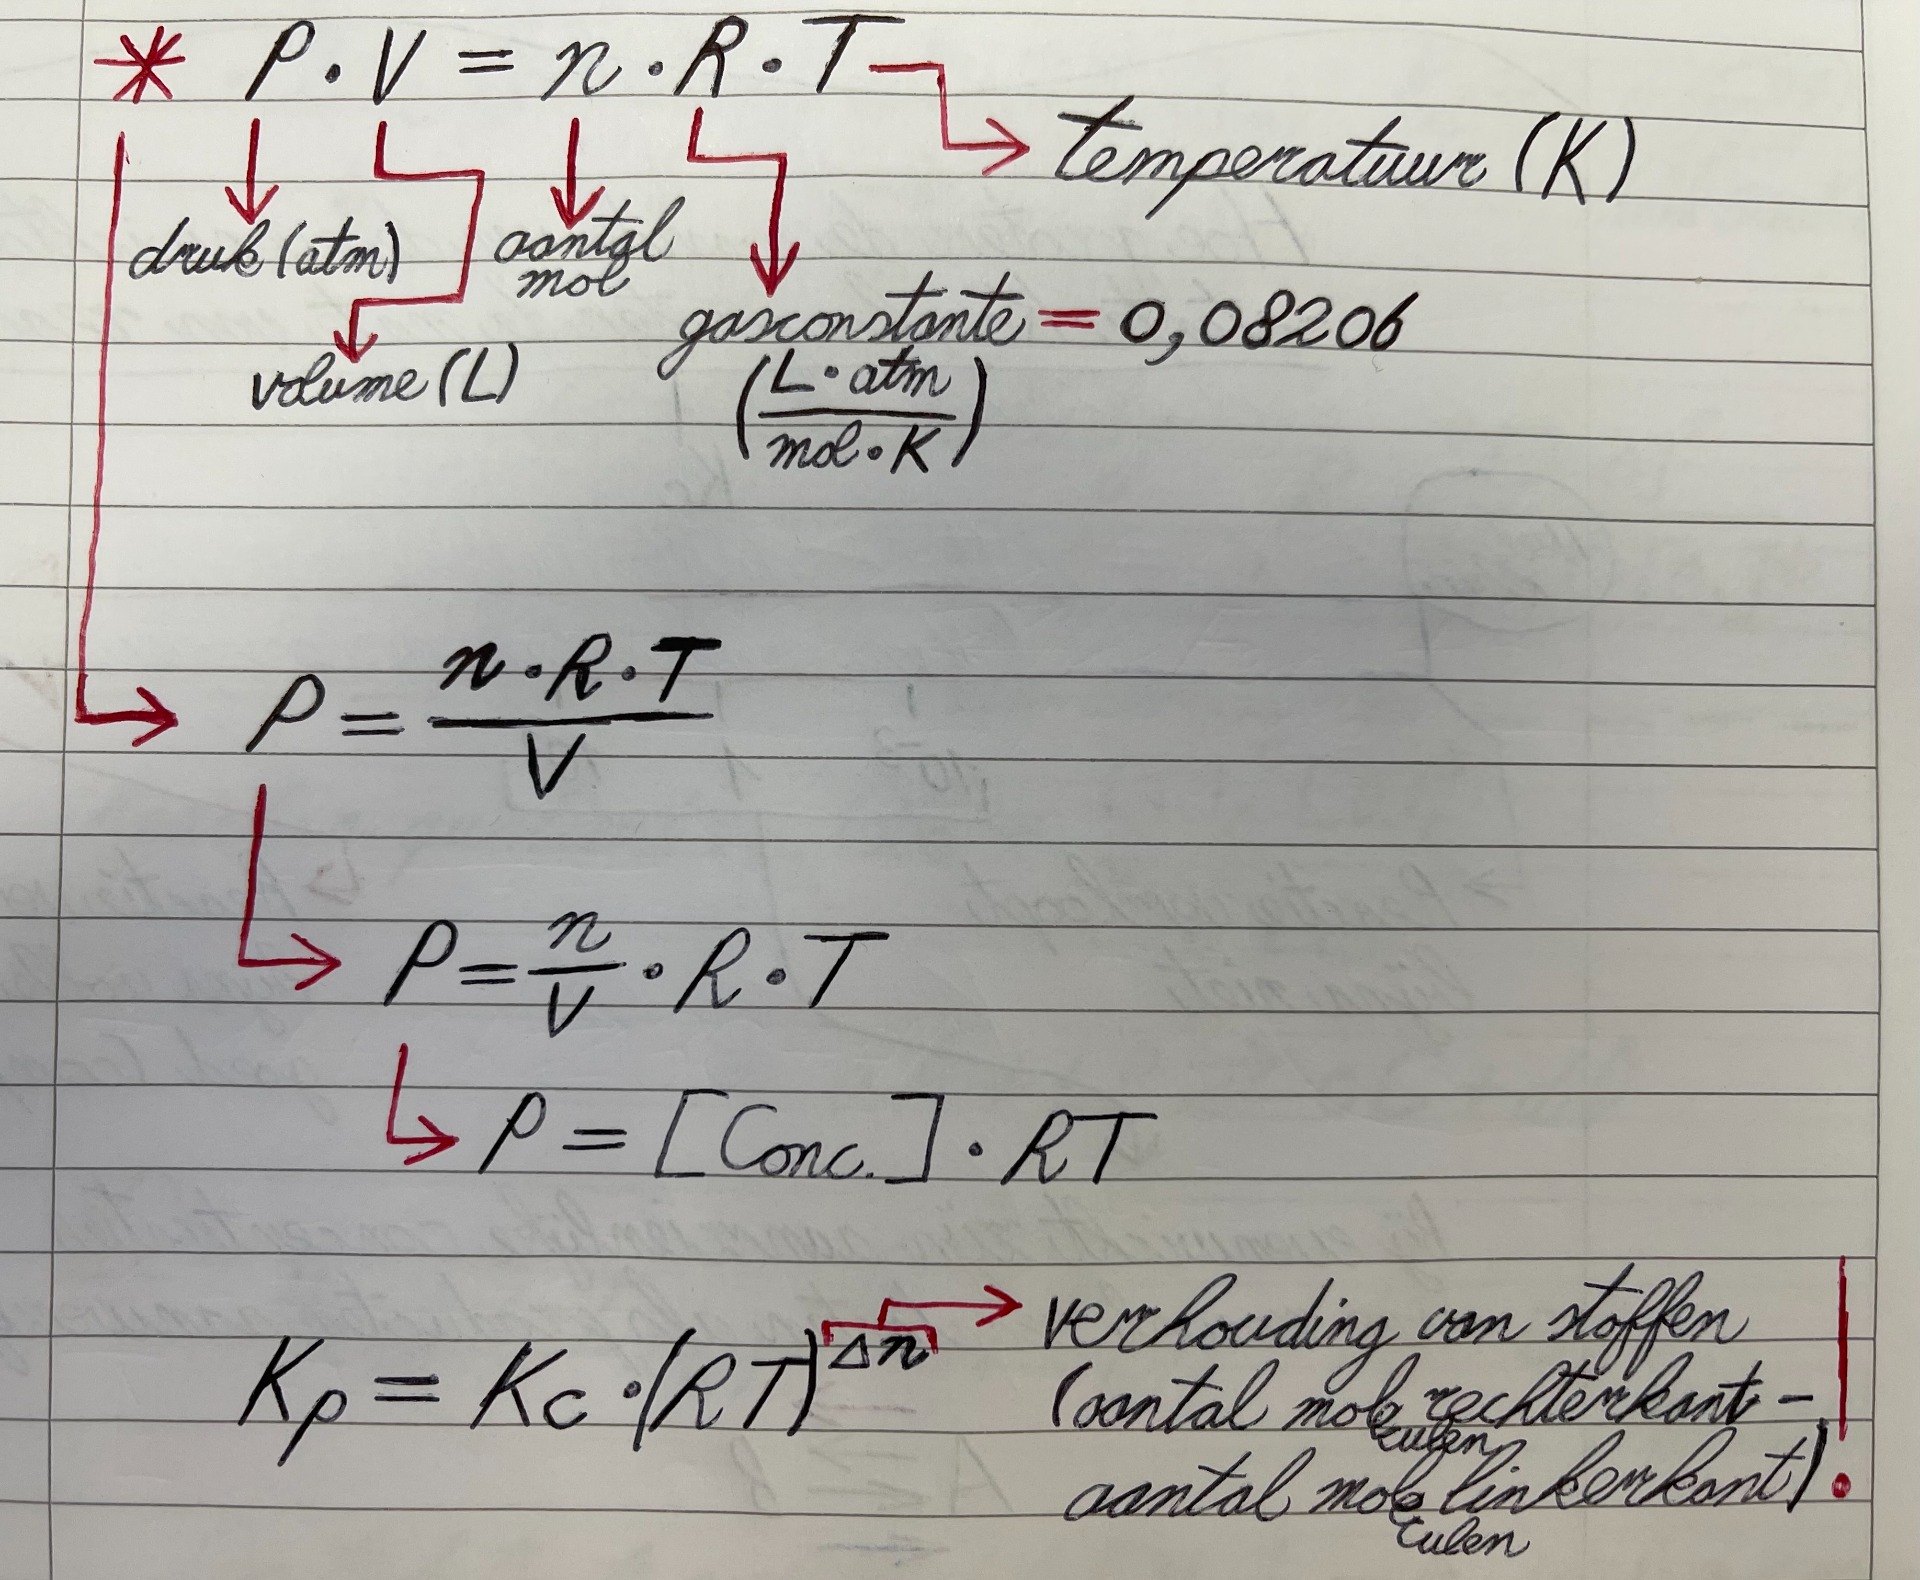 * P · V = n · R · T
temperatuur (K)
druk (atm)
aantal
mol
volume (L)
gasconstante = 0,08206
(L · atm / mol · K)
P = n · R · T / V
P = n/V · R · T
P = [Conc.] · RT
Kp = Kc · (RT)^Δn
verhouding van stoffen
(aantal moleculen rechterkant -
aantal moleculen linkerkant) !